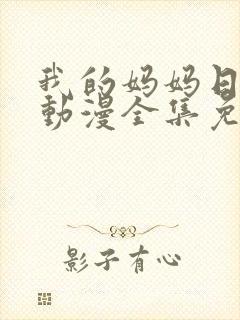 我的妈妈日
動漫全集免
影子有心